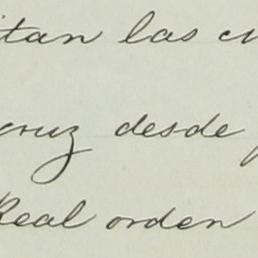 itan las cu
cruz desde
Real orden